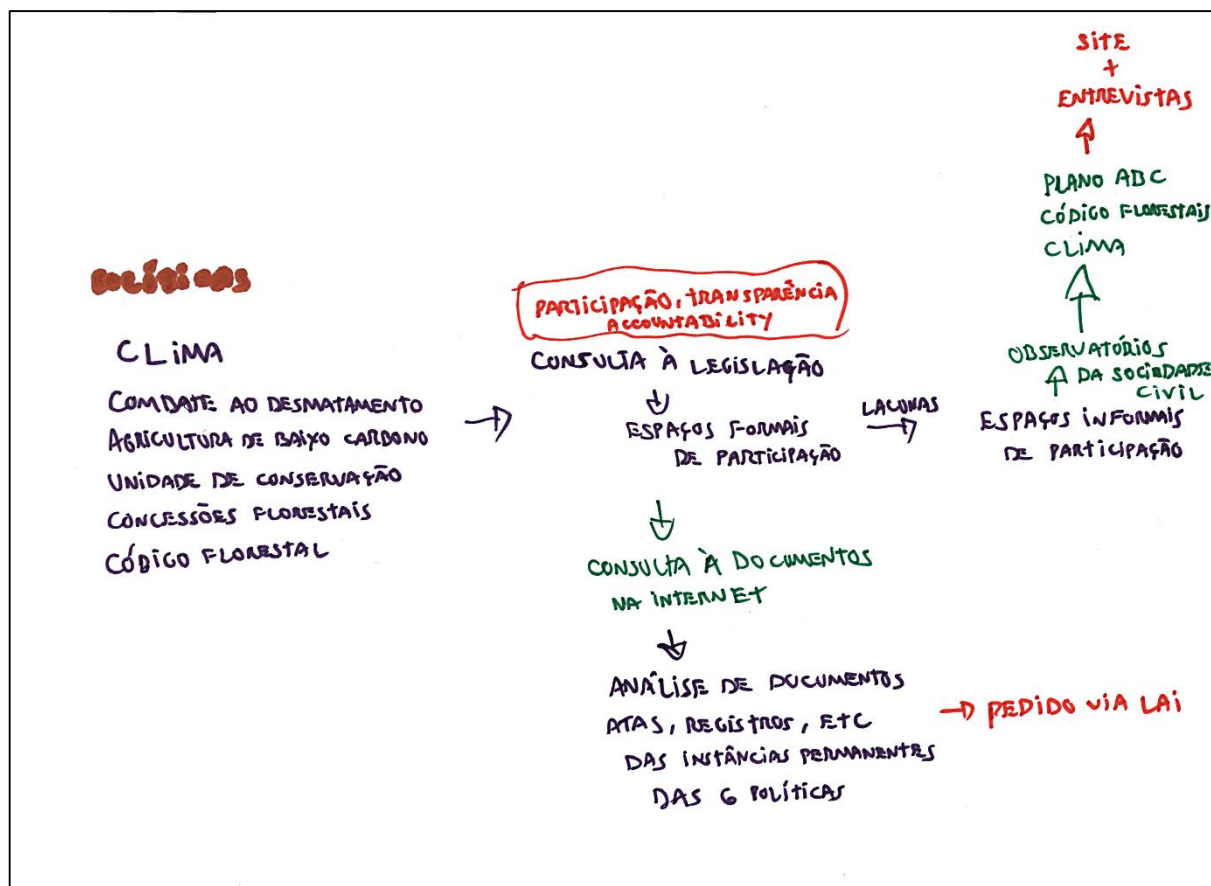 POLÍTICAS
CLIMA
COMBATE AO DESMATAMENTO
AGRICULTURA DE BAIXO CARBONO
UNIDADE DE CONSERVAÇÃO
CONCESSÕES FLORESTAIS
CÓDIGO FLORESTAL
PARTICIPAÇÃO, TRANSPARÊNCIA
ACCOUNTABILITY
CONSULTA À LEGISLAÇÃO
ESPAÇOS FORMAIS
DE PARTICIPAÇÃO
CONSULTA À DOCUMENTOS
NA INTERNET
ANÁLISE DE DOCUMENTOS
ATAS, REGISTROS, ETC
DAS INSTÂNCIAS PERMANENTES
DAS 6 POLÍTICAS
PEDIDO VIA LAI
LACUNAS
SITE
+
ENTREVISTAS
PLANO ABC
CÓDIGO FLORESTAIS
CLIMA
OBSERVATÓRIOS
DA SOCIEDADE
CIVIL
ESPAÇOS INFORMAIS
DE PARTICIPAÇÃO